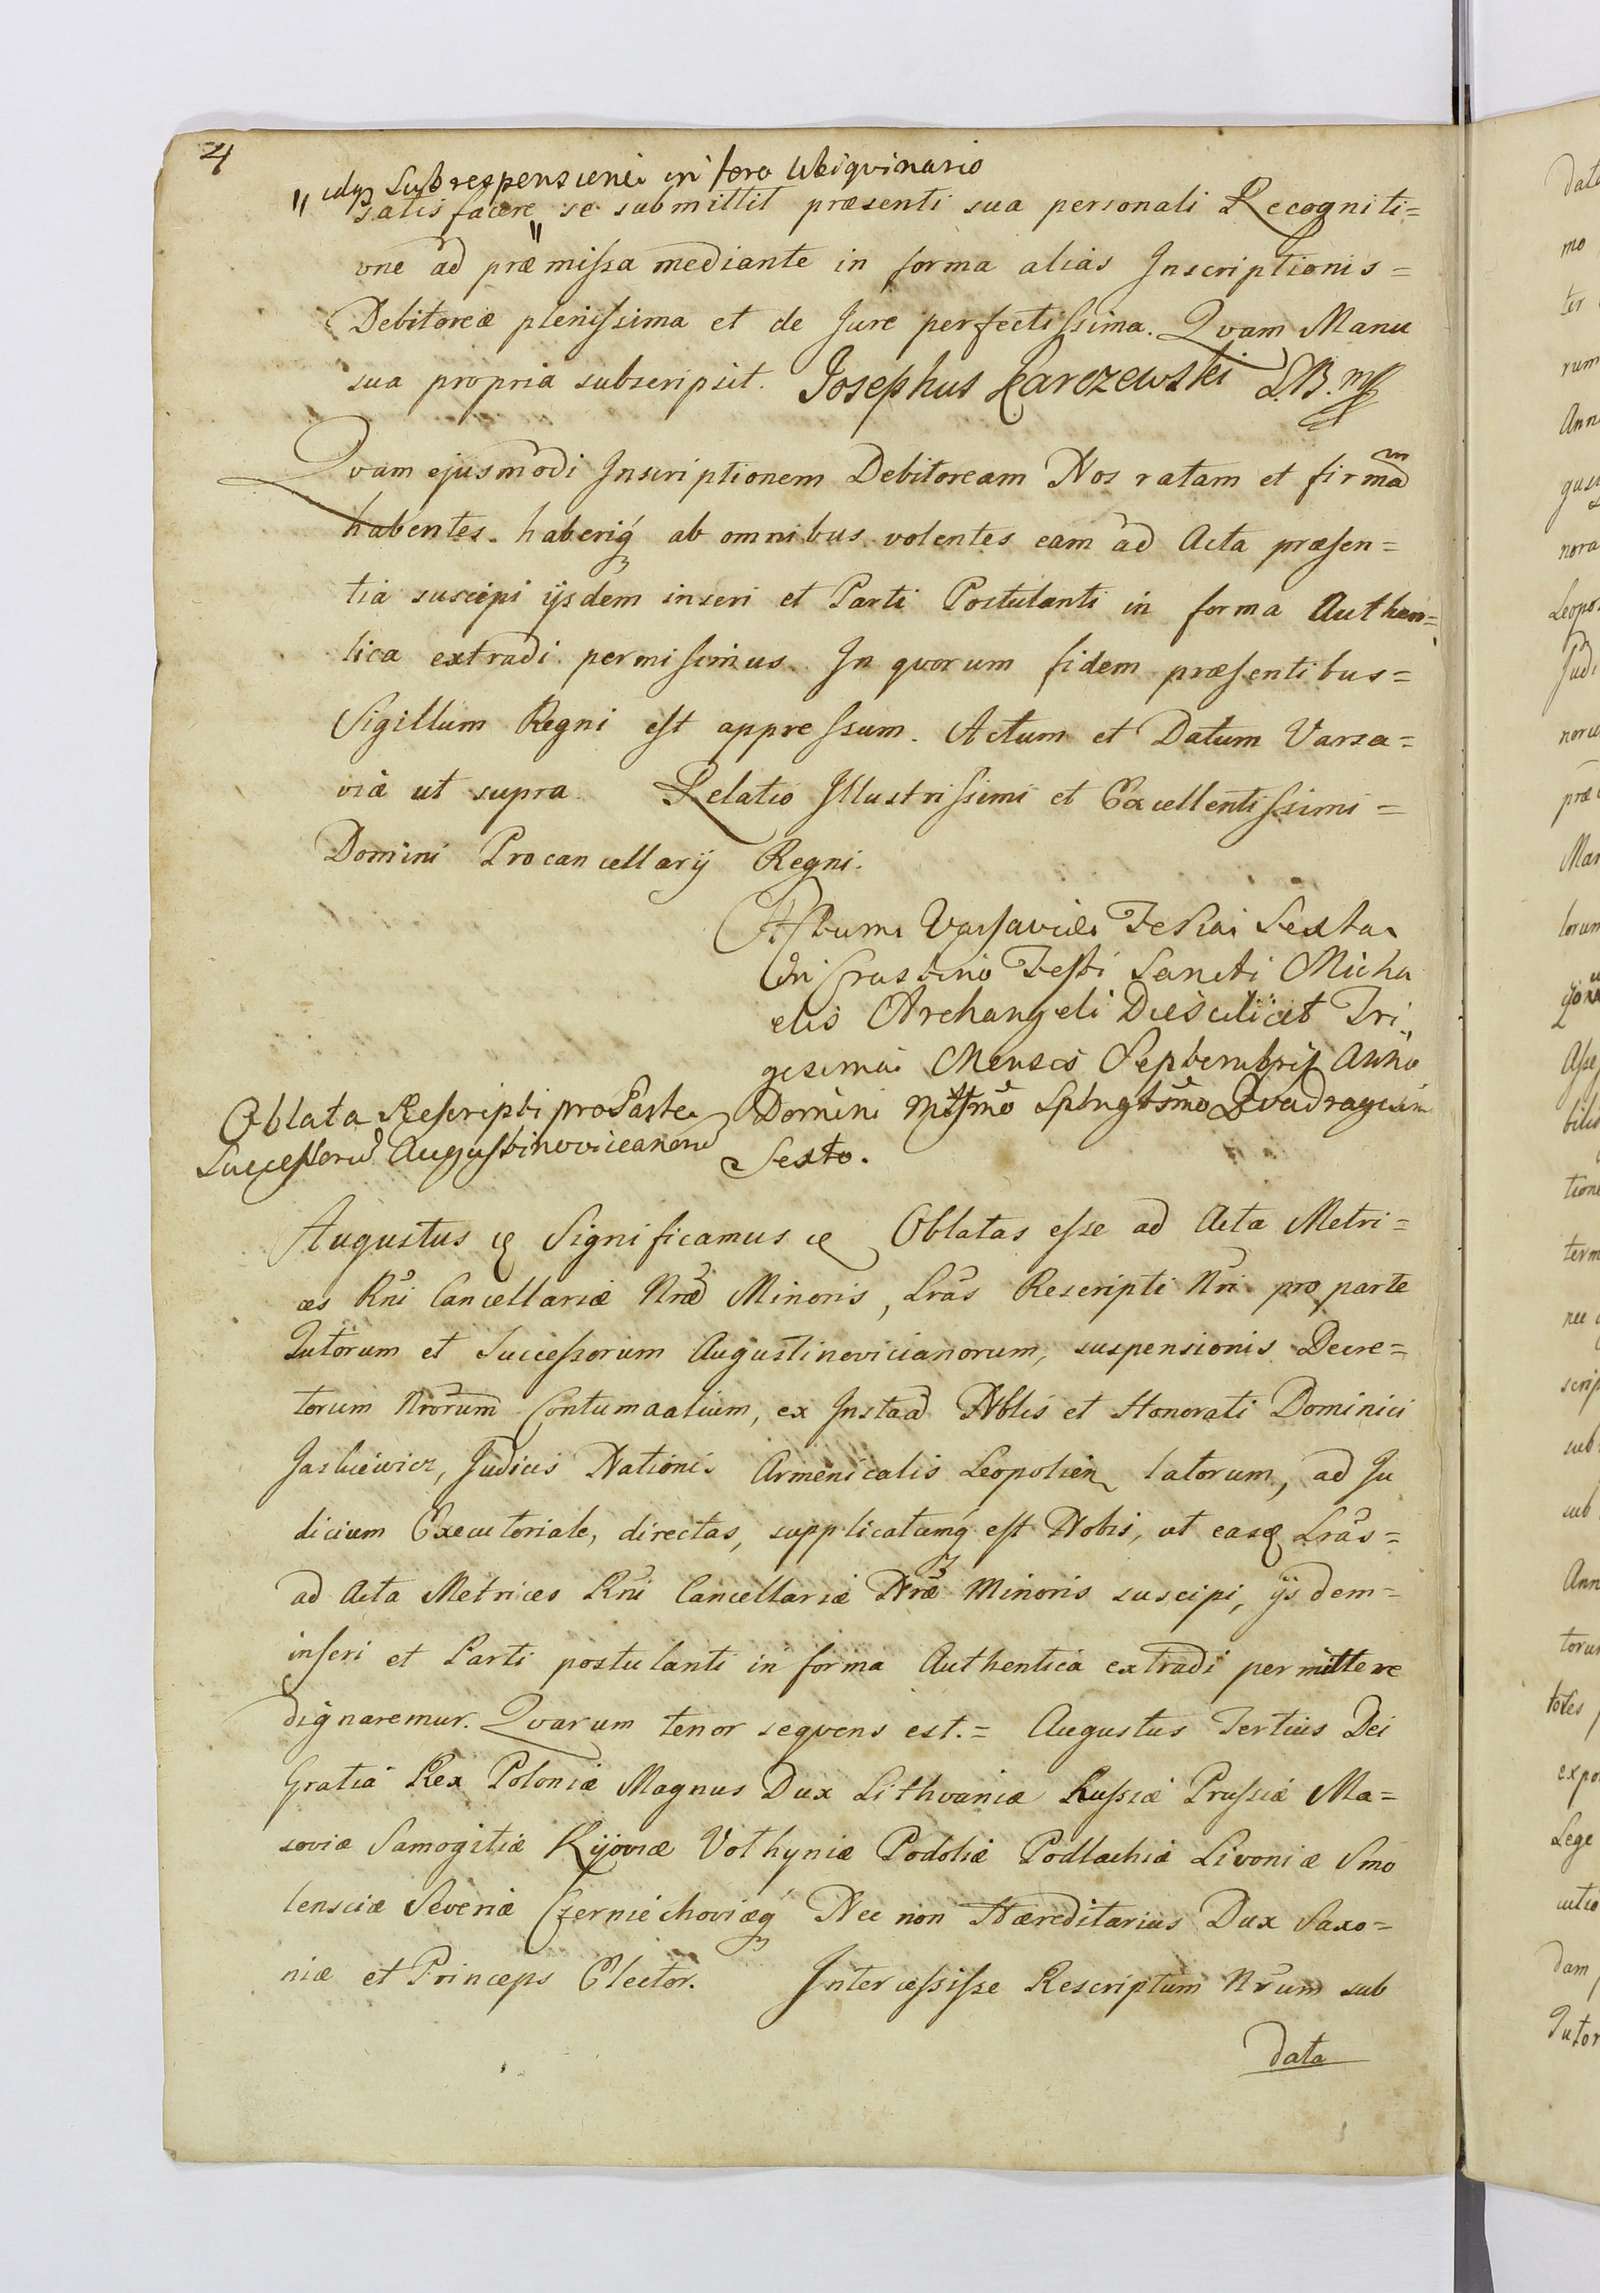 4
" idq Sub responsione in foro ubiquinario
satis facere " se submittit præsenti sua personali Recogniti=
one ad præmissa mediante in forma alias Inscriptionis=
Debitoreæ plenissima et de Jure perfectissima. Qvam Manu
sua propria subscripsit. Josephus Karczewski S.B. mp
Qvam ejusmodi Inscriptionem Debitoream Nos ratam et firmam
habentes. haberiq́ ab omnibus volentes eam ad Acta præsen=
tia suscipi ijsdem inseri et Parti Postulanti in forma Authen=
tica extradi permisimus. In qvorum fidem præsentibus=
Sigillum Regni est appressum. Actum et Datum Varsa=
viæ ut supra. Relatio Illustrissimi et Excellentissimi=
Domini Procancellarij Regni.
Actum Varsaviæ Feria Sexta
In Crastino Festi Sancti Micha
elis Archangeli Die scilicet Tri„
gesima Mensis Septembris Anno
Domini Mttmo Sptngtsmo Qvadragesimo
Sexto.
Oblata Rescripti pro Parte
Successorũ Augustinoviceanorũ
Augustus &c Significamus &c Oblatas esse ad Acta Metri=
ces Rni Cancellariæ Nræ Minoris, Lras Rescripti Nri pro parte
Tutorum et Successorum Augustinovicianorum, suspensionis Decre=
torum Nrorum Contumacialium, ex Instad Nblis et Honorati Dominici
Jaskiewicz, Judicis Nationis Armenicalis Leopolien latorum, ad Ju
dicium Executoriale, directas, supplicatumq́ est Nobis, ut easq Lras=
ad Acta Metrices Rni Cancellariæ Nræ Minoris suscipi, ijsdem=
inseri et Parti postulanti in forma Authentica extradi permittere
dignaremur. Qvarum tenor seqvens est.= Augustus Tertius Dei
Gratia Rex Poloniæ Magnus Dux Lithvaniæ Russiæ Prussiæ Ma=
soviæ Samogitiæ Kijoviæ Volhyniæ Podoliæ Podlachiæ Livoniæ Smo
lensciæ Severiæ Czerniechoviæq́ Nec non Hæreditarius Dux Saxo=
niæ et Princeps Elector. Intercessisse Rescriptum Nrum sub
data